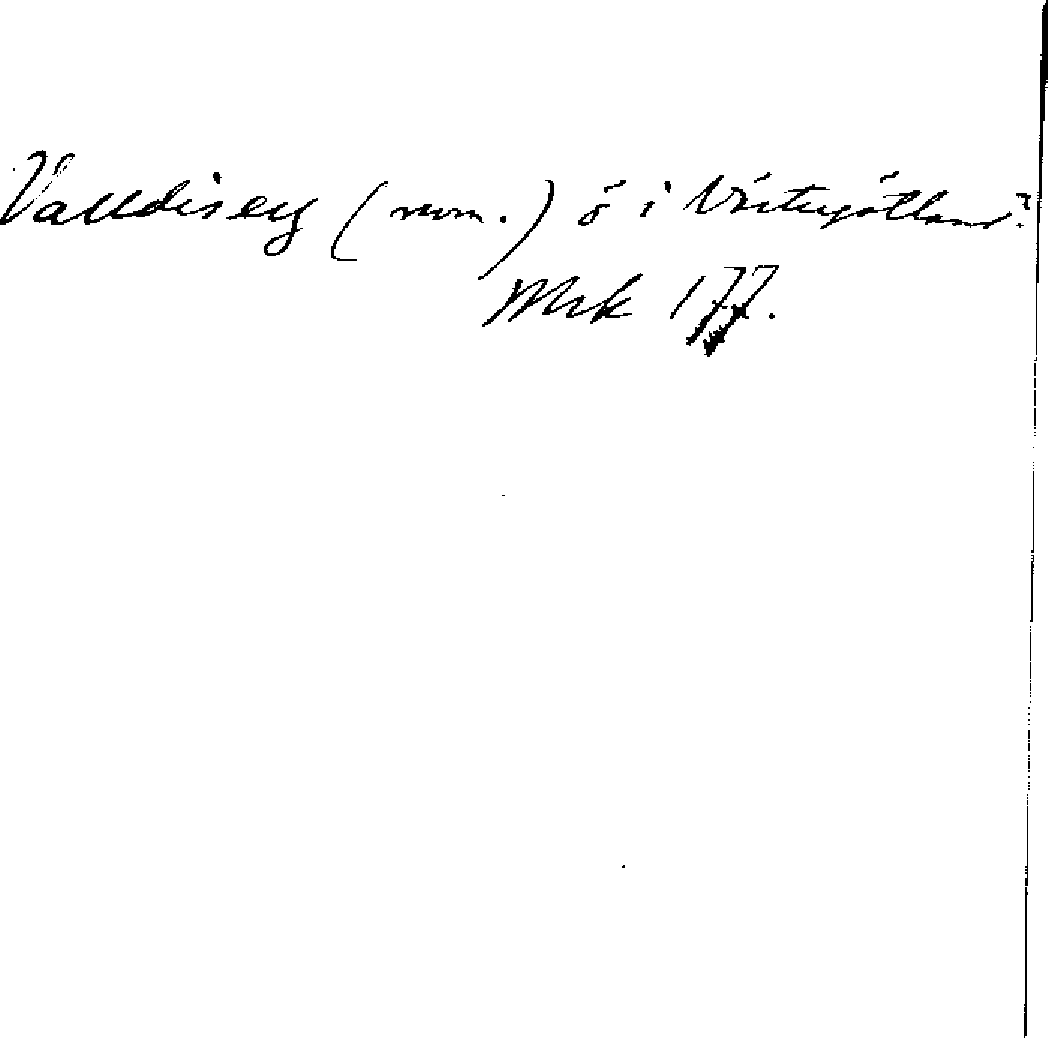 Valldisey (nom.) ö i Västergötland?
Mrk 177.